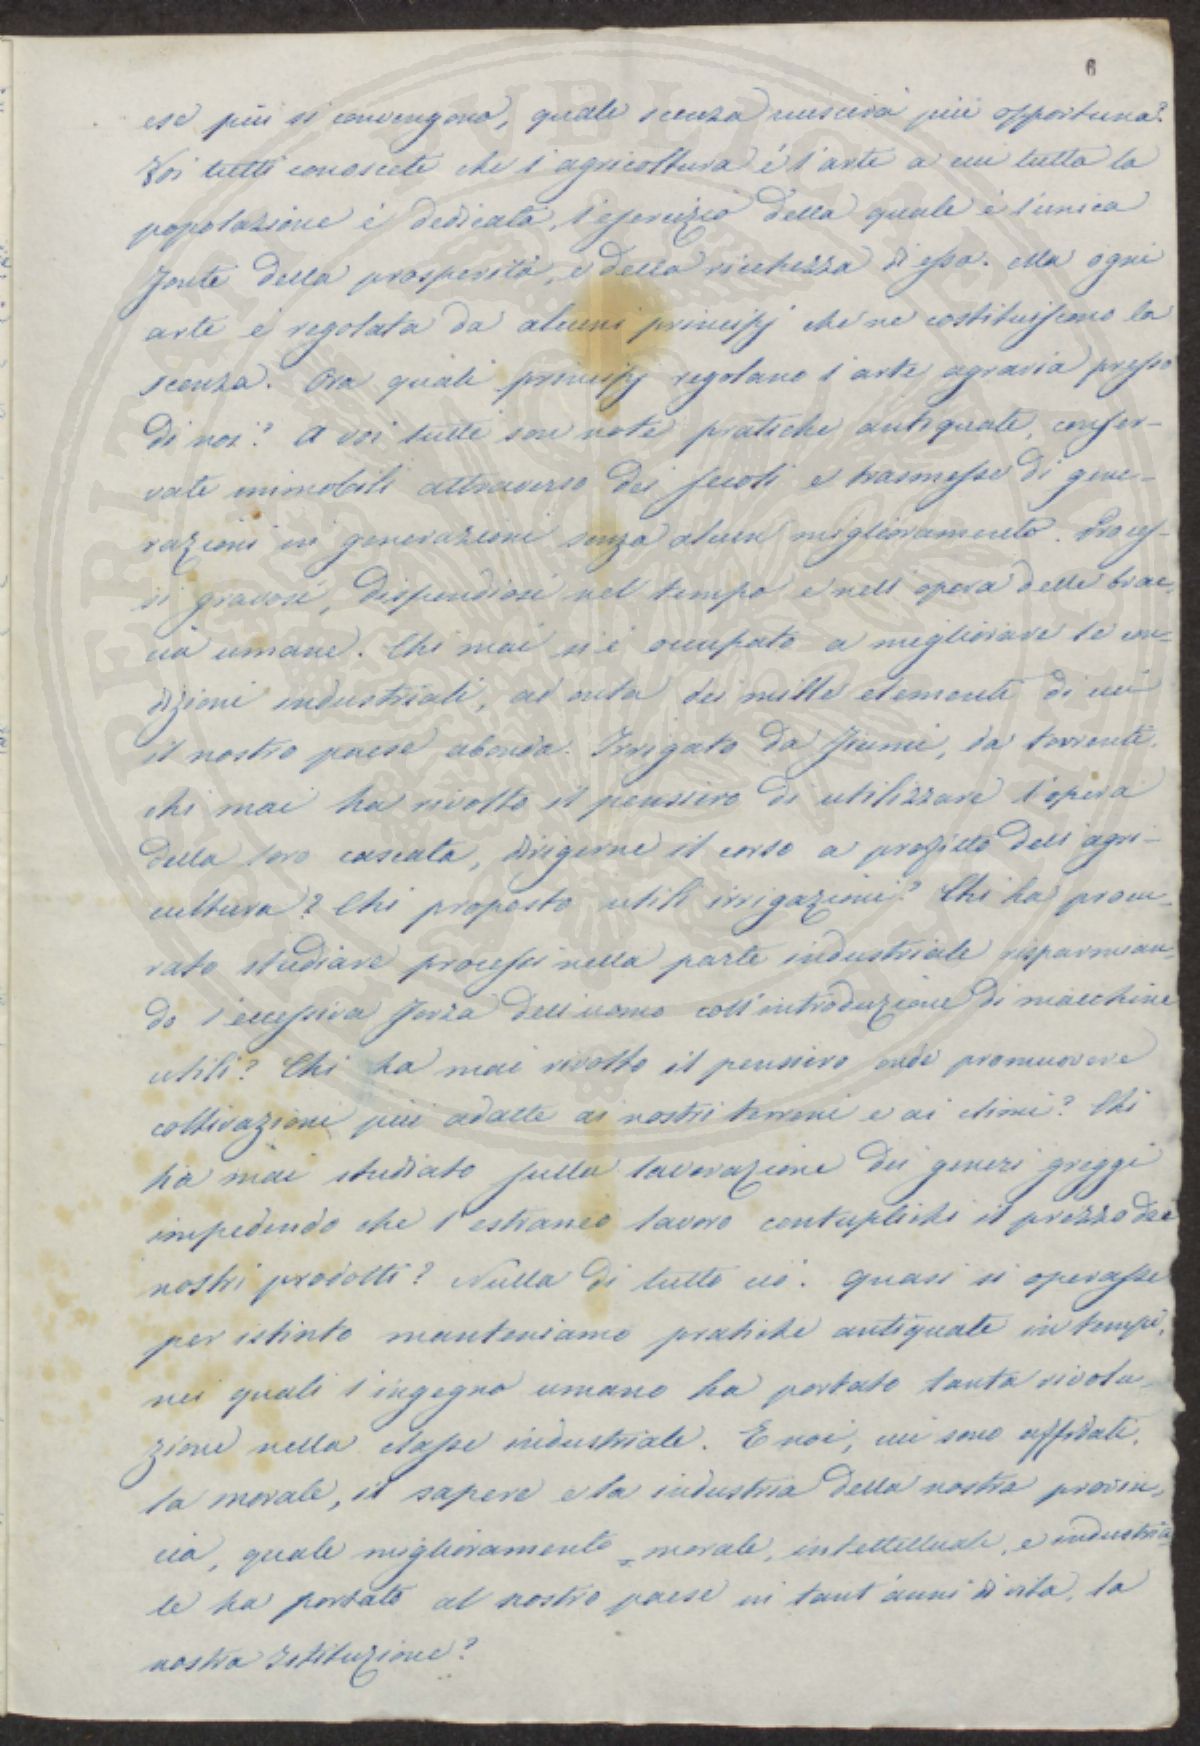 6
ese più si convengono, quale scenza riuscirà più opportuna?
Voi tutti conoscete che l'agricoltura è l'arte a cui tutta la
popolazione è dedicata, l'esercizio della quale è l'unica
fonte della prosperità, e della ricchezza di essa. Ma ogni
arte è regolata da alcuni principj che ne costituiscono la
scenza. Ora quali principj regolano l'arte agraria presso
di noi? A voi tutti son note pratiche antiquate, conser-
vate immobili attraverso dei secoli e trasmesse di gene-
razioni in generazioni senza alcun miglioramento. Proces-
si gravosi, dispendiosi nel tempo e nell'opera delle brac-
cia umane. Chi mai si è occupato a migliorare le con-
dizioni industriali, ad onta dei mille elementi di cui
il nostro paese abonda. Irrigato da fiumi, da torrenti,
chi mai ha rivolto il pensiero di utilizzare l'opera
della loro cascata, dirigerne il corso a profitto dell'agri-
cultura? Chi proposto utili irrigazioni? Chi ha procu-
rato studiare processi nella parte industriale risparmian-
do l'eccessiva forza dell'uomo coll'introduzione di macchine
utili? Chi ha mai rivolto il pensiero onde promuovere
coltivazioni più adatte ai nostri terreni e ai climi? Chi
ha mai studiato sulla lavorazione dei generi greggi
impedendo che l'estraneo lavoro centuplichi il prezzo dei
nostri prodotti? Nulla di tutto ciò. Quasi si operasse
per istinto manteniamo pratiche antiquate in tempi,
nei quali l'ingegno umano ha portato tanta rivolu-
zione nella classe industriale. E noi, cui sono affidati,
la morale, il sapere e la industria della nostra provin-
cia, quale miglioramento morale, intellettuale, e industria-
le ha portato al nostro paese in tant'anni di vita, la
nostra Istituzione?